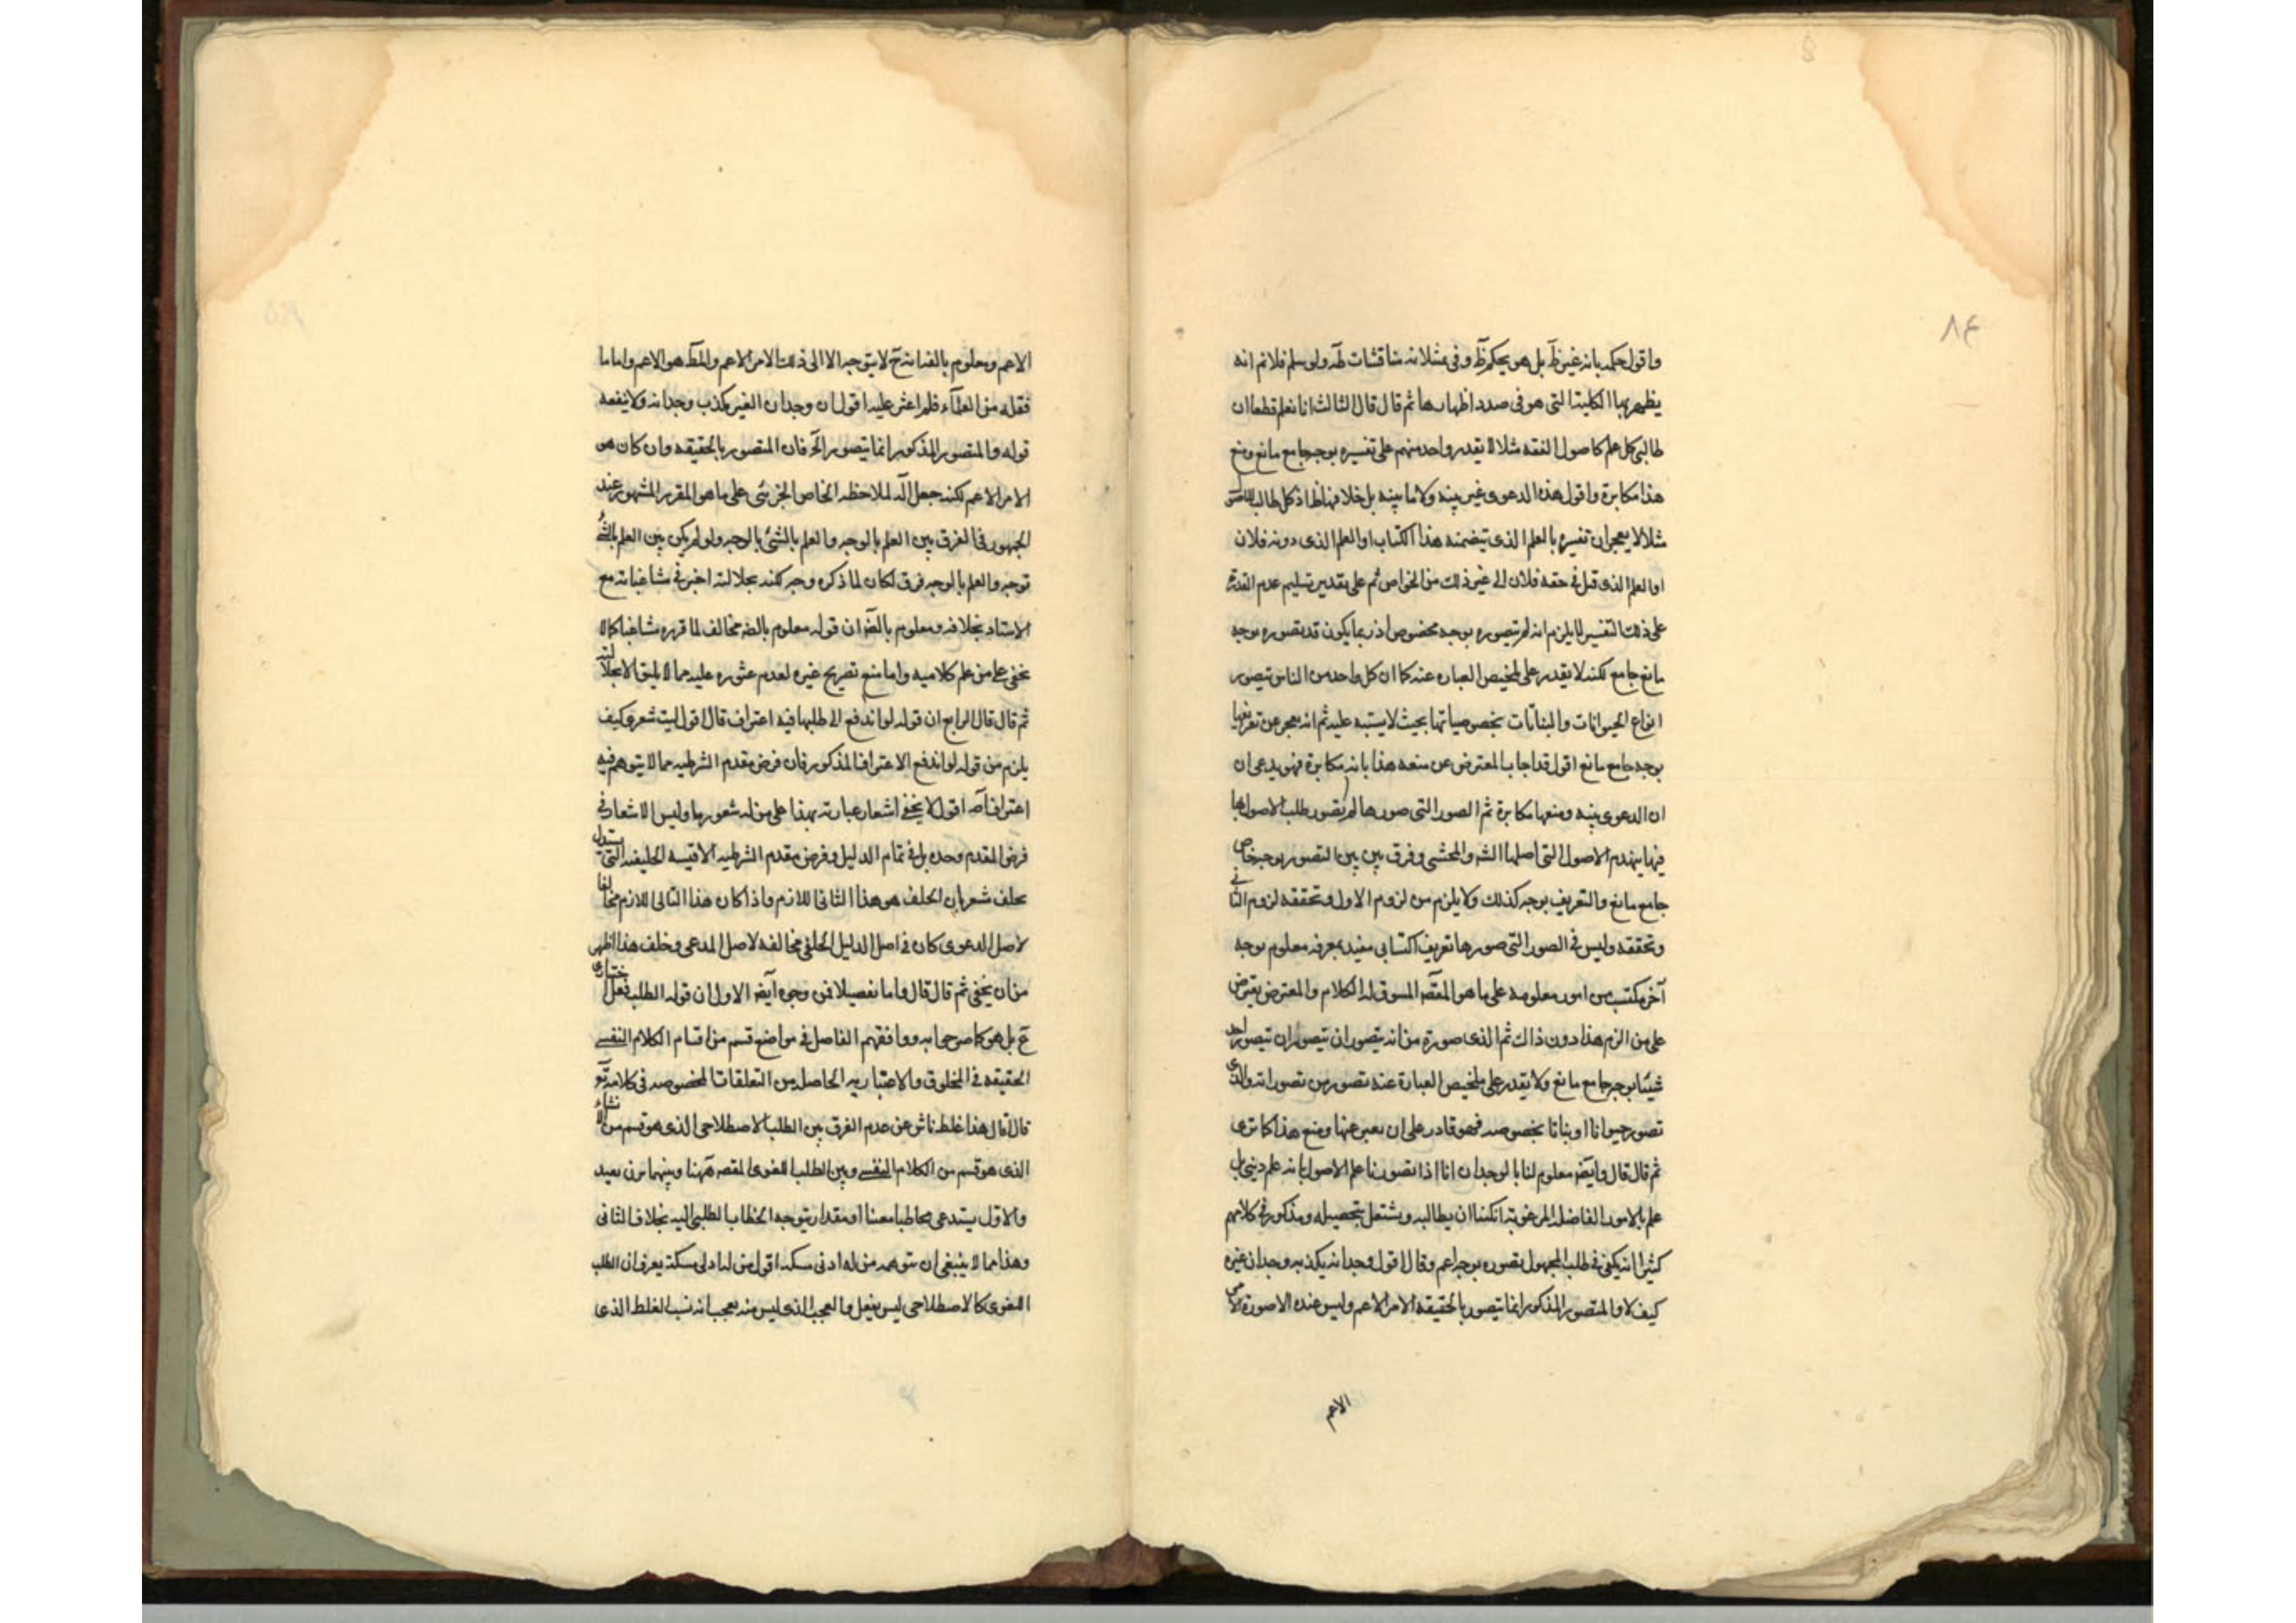 ٨٤
واقول حكمه بانه غير ظ بل هو بحكم ظ وفى مثلانه مناقشات ظه ولو سلم فلانم انه
يظهر بها الكلية التى هو فى صدد اظهارها ثم قال قال الثالث انا نعلم قطعا ان
طالبى كل علم كاصول الفقه مثلا لا يقدر واحد منهم على تفسيره بوجه جامع مانع ومنع
هذا مكابرة واقول هذه الدعوى غير بينه ولا مابينه بل خلافها ظ اذ كل طالب
مثلا لا يعجز ان تفسيره بالعلم الذى يتضمنه هذا الكتاب او العلم الذى دونه فلان
او العلم الذى قيل فى حقه فلان الى غير ذلك من الخواص ثم على تقدير تسليم عدم القدرة
على ذلك التفسير لا يلزم انه لم يتصوره بوجه مخصوص اذ ربما يكون قد يتصوره بوجه
مانع جامع لكنه لا يقدر على تلخيص العباره عنه كما ان كل واحد من الناس يتصور
انواع الحيوانات والنباتات بخصوصياتها بحيث لا يشتبه عليه ثم انه يعجز عن تعريفها
بوجه جامع مانع اقول قد اجاب المعترض عن منعه هذا بانه مكابرة فهو يدعى ان
ان الدعوى بينه ومنعها مكابرة ثم الصور التى صورها لم يتصور طلب الاصول بها
فيها ينهدم الاصول التى اصلها الشه والمحشى وفرق بين بين التصور بوجه خاص
جامع مانع والتعريف بوجه كذلك ولا يلزم من لزوم الاول وتحققه لزوم الثانى
وتحققه وليس فى الصور التى صورها تعريف اكتسابى مفيد بمعرفه معلوم بوجه
آخر مكتسب من امور معلومه على ما هو المقصه المسوق له الكلام والمعترض يعترض
على من الزم هذا دون ذاك ثم الذى صورة من انه يتصور ان يتصور ان يتصور احد
شيئا بوجه جامع مانع ولا يقدر على تلخيص العبارة عنه تصور من تصوراته والذى
تصور حيوانا او نباتا بخصوصه فهو قادر على ان يعبر عنها ومنع هذا كما ترى
ثم قال قال وايضه معلوم لنا بالوجدان انا اذا تصورنا علم الاصول بانه علم دينى بل
علم بالامور الفاضله المرغوبه امكننا ان يطالبه ويشتغل بتحصيله ومذكور فى كلامهم
كثيرا انه يكفى فى طلب المجهول تصوره بوجه اعم وقال اقول وجدانه يكذبه وجدان غيره
كيف لا والمتصور المذكور انما يتصور بالحقيقة الامر الاعم وليس عنده الا صورة الامر
الاعم
الاعم ومعلوم بالضه انه ح لا يتوجه الا الى ذلك الامر الاعم والمط هو الاعم واما ما
نقله من العلماء فلم اعثر عليه اقول ان وجدان الغير مكذب وجدانه ولا ينفعه
قوله والمتصور المذكور انما يتصور الخ فان المتصور بالحقيقه وان كان هو
الامر الاعم لكنه جعل آلة لملاحظه الخاص الجزئى على ما هو المقرر المشهور عند
الجمهور فى الفرق بين العلم بالوجه والعلم بالشئ بالوجه ولو لم يكن بين العلم بالشئ
توجه والعلم بالوجه فرق لكان لما ذكره وجه لكنه بجلالته اخبر فى مشاغباته مع
الاستاد بخلافه ومعلوم بالضه ان قوله معلوم بالضه مخالف لما قرره مشاغبا كما لا
يخفى على من علم كلاميه واما منع تصريح غيره لعدم عثوره عليه مما لا يليق الا بجلالته
ثم قال قال الرابع ان قوله لو اندفع الى طلبها فيه اعتراف قال اقول ليت شعرى كيف
يلزم من قوله لو اندفع الاعتراف المذكور فان فرض مقدم الشرطيه مما لا يتوهم فيه
اعتراف اصه اقول لا يخفى اشعار عبارته بهذا على من له شعور ما وليس الاشعار فى
فرض المقدم وحده بل فى تمام الدليل وفرض مقدم الشرطيه الاقيسه الخليفه التى يستدل
بخلف شعر بان الخلف هو هذا الثانى اللازم واذا كان هذا التالى اللازم مخالفا
لاصل الدعوى كان فى اصل الدليل الخلفى مخالفه لاصل المدعى وخلف هذا اظهر
من ان يخفى ثم قال قال واما تفصيلا فمن وجوه آيضه الاول ان قوله الطلب فعل اختيارى
ع بل هو كما صرحوا به ووافقهم الفاضل فى مواضع قسم من اقسام الكلام النفسى
الحقيقه فى المخلوق والاعتباريه الحاصله من التعلقات المخصوصه فى كلامه تع
قال اقول هذا غلط ناش عن عدم الفرق بين الطلب الاصطلاحى الذى هو قسم من الانشاء
الذى هو قسم من الكلام النفسى وبين الطلب اللغوى المقصه ههنا وبينهما بون بعيد
والاول يستدعى مخاطبا معينا او مقدار يتوجه الخطاب الطلبى اليه بخلاف الثانى
وهذا مما لا ينبغى ان يتوهمه من له ادنى مسكه اقول من له ادنى مسكة يعرف ان الطلب
اللغوى كالاصطلاحى ليس بفعل والعجب الذى ليس منه بعجب انه نسب الغلط الذى